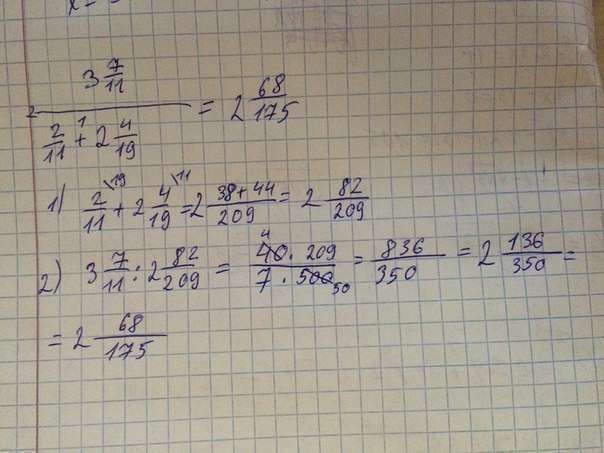 3 7/11
2 ————————— = 2 68/175
2/11 + 1 2 4/19
1) 2/11 \19 + 2 4/19 \11 = 2 38+44/209 = 2 82/209
2) 3 7/11 : 2 82/209 = 40 4 · 209/7 · 500 50 = 836/350 = 2 136/350 =
= 2 68/175